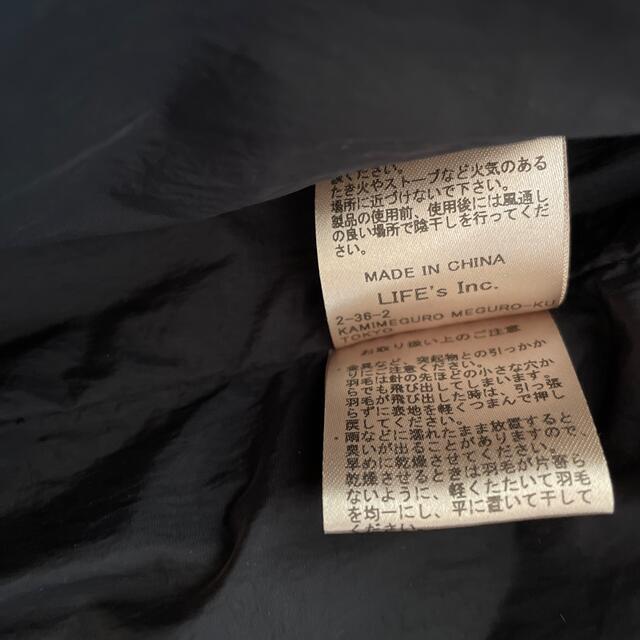 ください。
たき火やストーブなど火気のある
場所に近づけないで下さい。
製品の使用前、使用後には風通し
の良い場所で陰干しを行ってくだ
さい。
MADE IN CHINA
LIFE's Inc.
2-36-2
KAMIMEGURO MEGURO-KU
TOKYO
お取り扱い上のご注意
・金具など、突起物との引っかか
りにご注意ください。
羽毛は針の先ほどの小さな穴か
らでも飛び出してしまいます。
羽毛が飛び出した時は、引っ張
らずに表地を軽くつまんで押し
戻してください。
・雨などに濡れたまま放置すると
臭いが出ることがありますので
早めに乾燥させてください。
乾燥させるときは羽毛が片寄ら
ないように、軽くたたいて羽毛
を均一にし、平に置いて干して
ください。